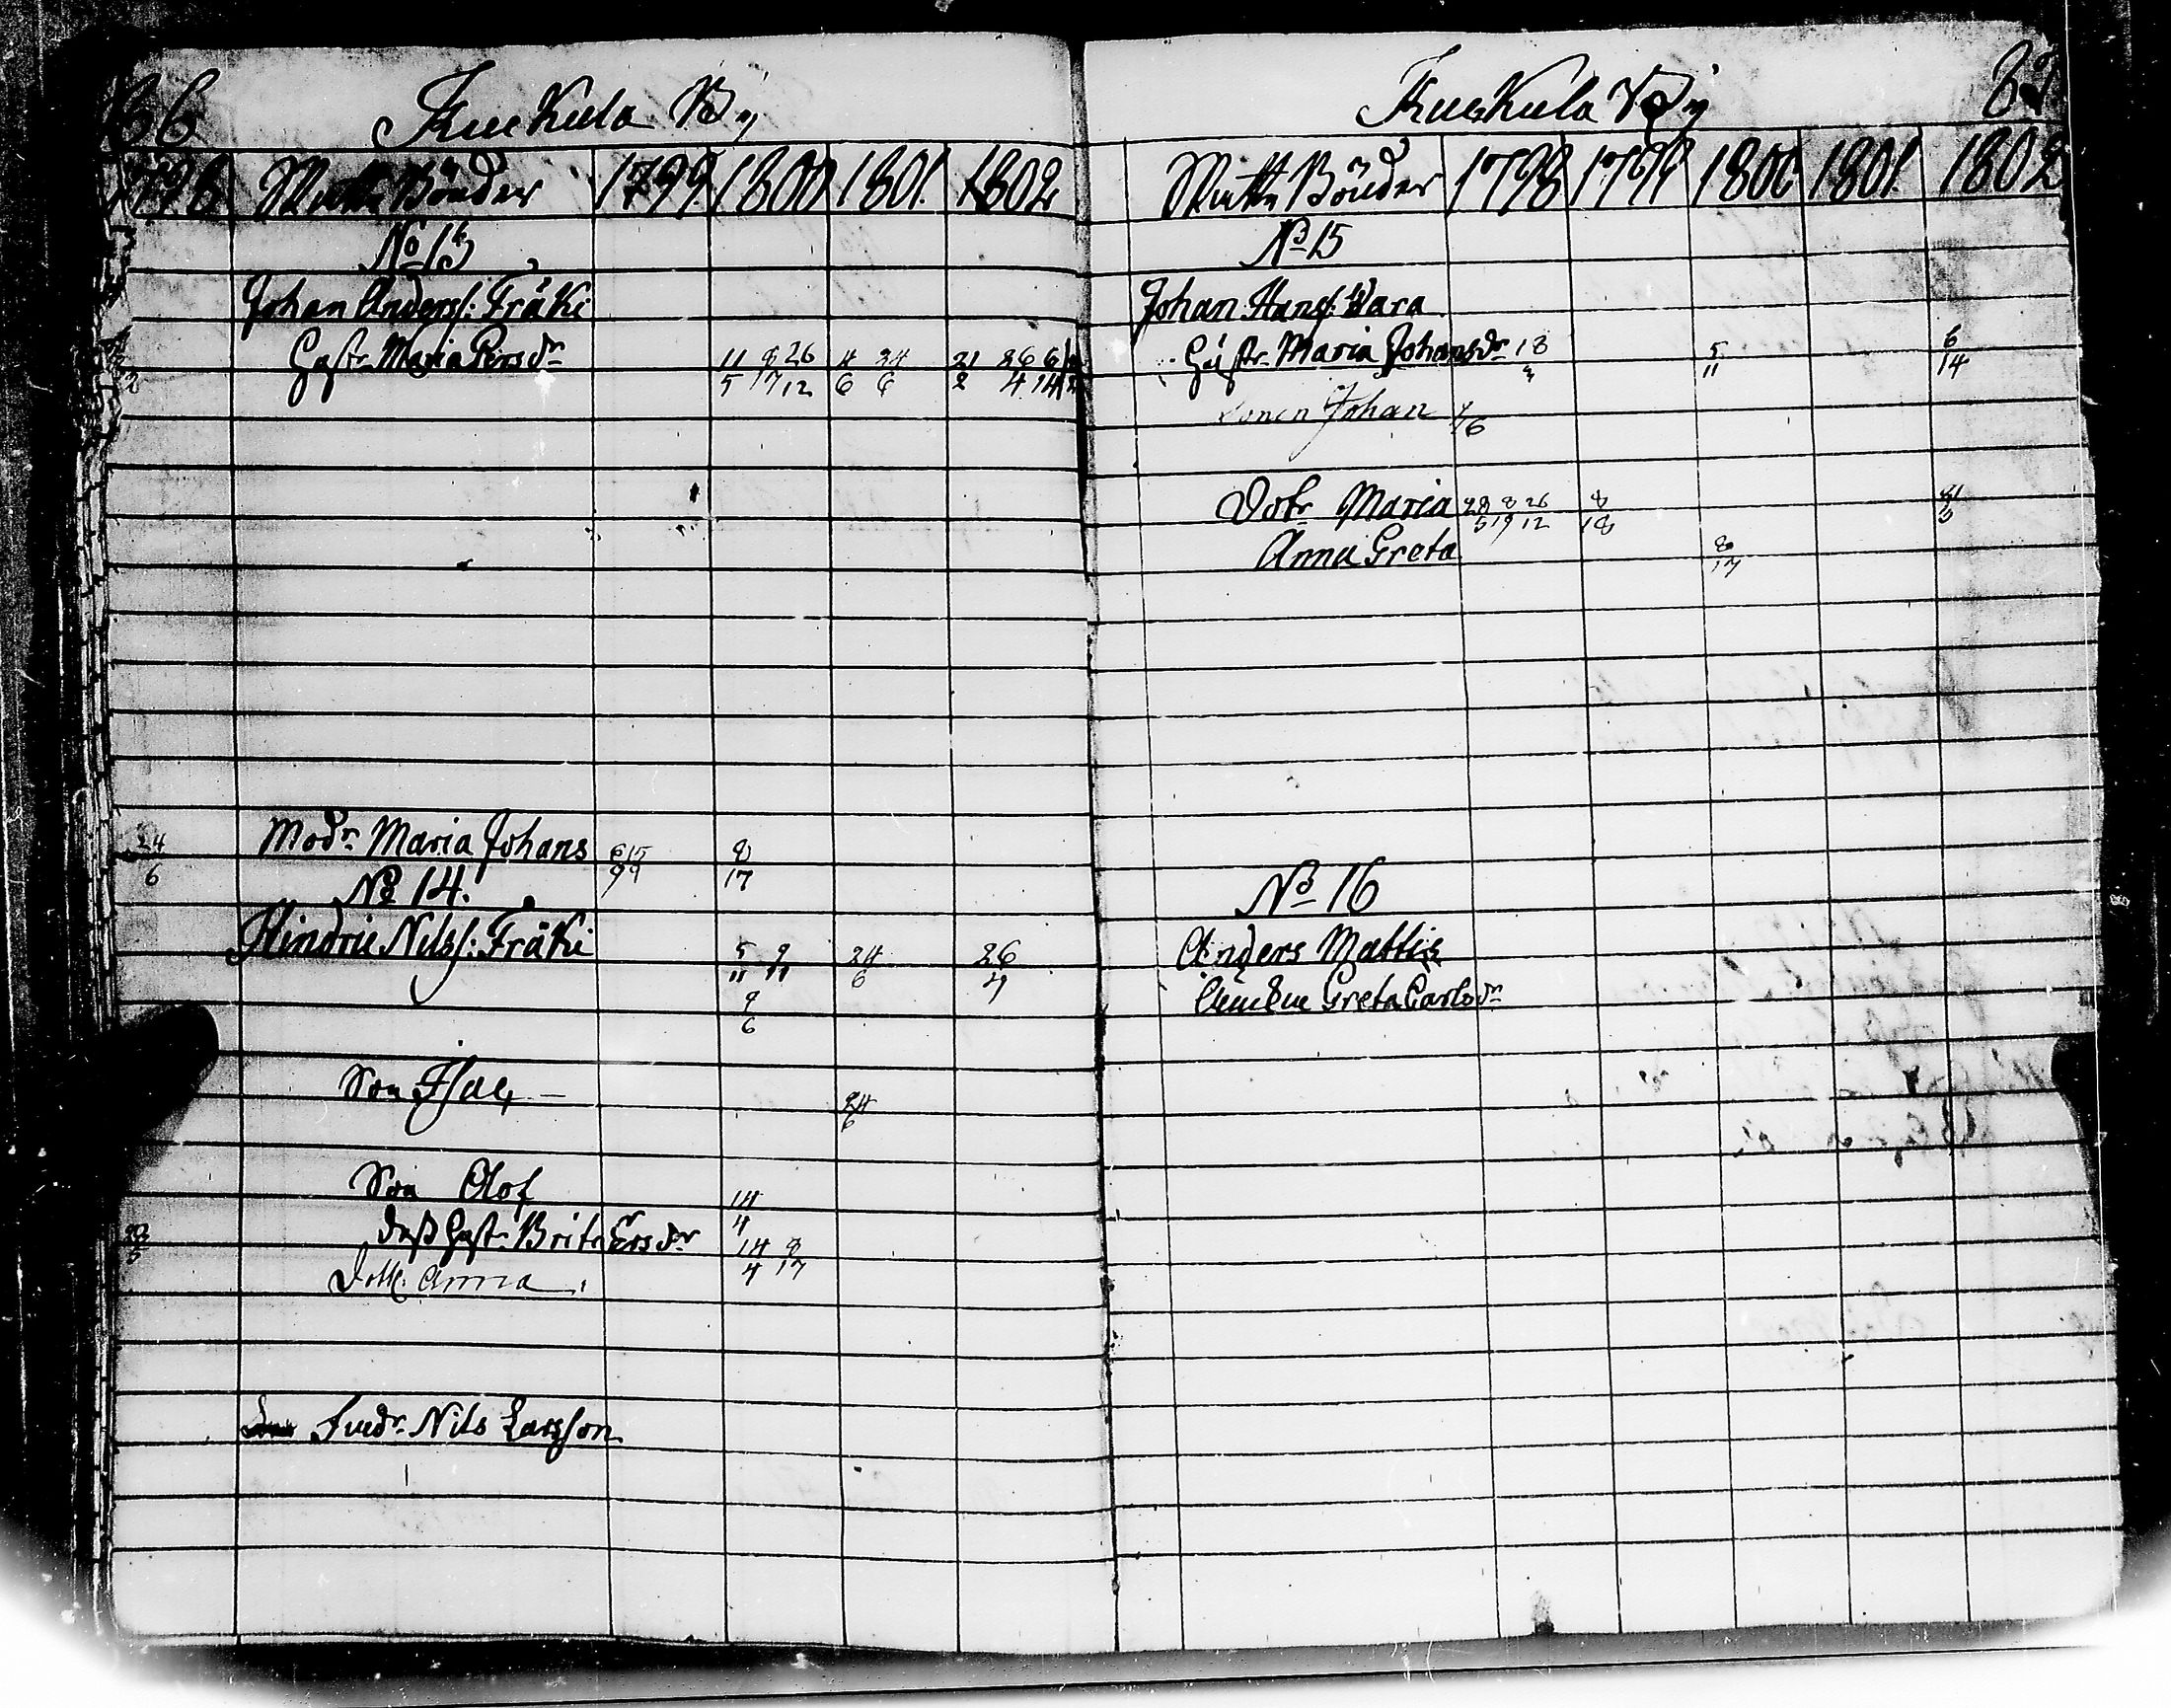 66 Kuckula By
1798 Skatte Bönder 1799 1800 1801. 1802
No 13
Johan Anders: Fräki
Hustr Maria Persdr 11/5 8/17 26/12 4/6 24/6 21/2 26/4 6/14
24/6 Modr Maria Johans 6/9 15/9 8/17
No 14.
Hindric Nils: Fräki 5/11 9/11 24/6 26/4
9/6
Son Isac 24/6
Son Olof 14/4
dess Hustr Brita Ersdr 14/4 8/17
Dott. Anna
Fadr Nils Larsson
Kuckula By
Skatte Bönder 1798 1799 1800 1801. 1802
No 15
Johan Hans: Wara
Hustr Maria Johansdr 18/3 5/11 6/14
Sonen Johan 4/6
Dotr Maria 28/5 8/19 26/12 8/18
Anna Greta 8/17
No 16
Anders Mattis
Enkan Greta Carlsdr